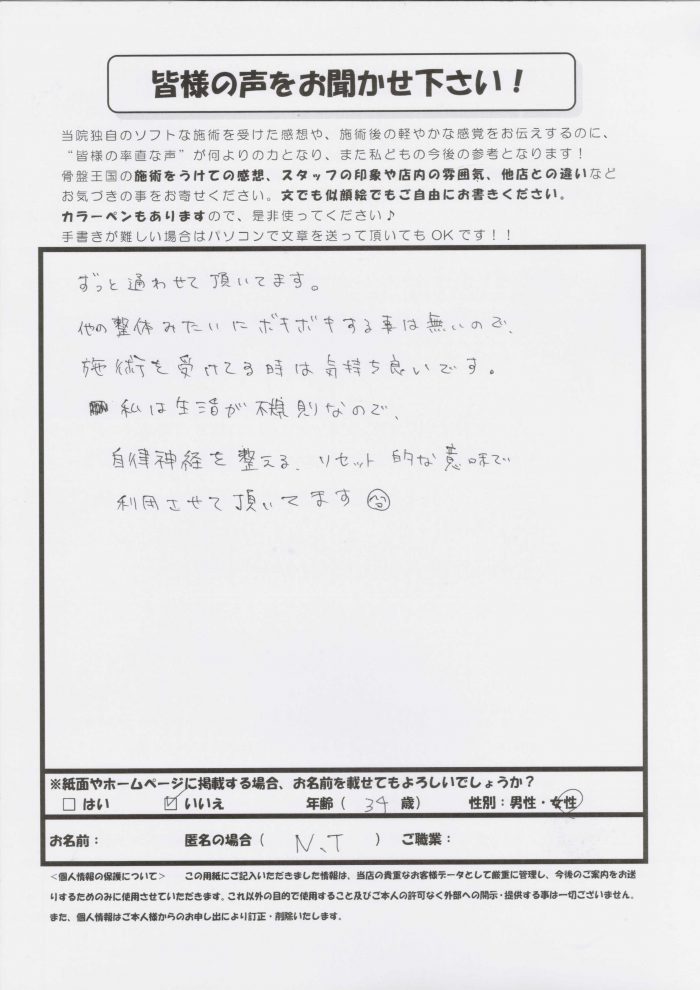 皆様の声をお聞かせ下さい！
当院独自のソフトな施術を受けた感想や、施術後の軽やかな感覚をお伝えするのに、
“皆様の率直な声”が何よりの力となり、また私どもの今後の参考となります！
骨盤王国の施術をうけての感想、スタッフの印象や店内の雰囲気、他店との違いなど
お気づきの事をお寄せください。文でも似顔絵でもご自由にお書きください。
カラーペンもありますので、是非使ってください♪
手書きが難しい場合はパソコンで文章を送って頂いてもOKです！！
ずっと通わせて頂いてます。
他の整体みたいにボキボキする事は無いので、
施術を受けてる時は気持ち良いです。
私は生活が不規則なので、
自律神経を整える、リセット的な意味で
利用させて頂いてます
※紙面やホームページに掲載する場合、お名前を載せてもよろしいでしょうか？
□ はい ☑ いいえ 年齢（ 34 歳） 性別：男性・女性
お名前： 匿名の場合（ N.T ） ご職業：
＜個人情報の保護について＞ この用紙にご記入いただきました情報は、当店の貴重なお客様データとして厳重に管理し、今後のご案内をお送
りするためのみに使用させていただきます。これ以外の目的で使用すること及びご本人の許可なく外部への開示・提供する事は一切ございません。
また、個人情報はご本人様からのお申し出により訂正・削除いたします。